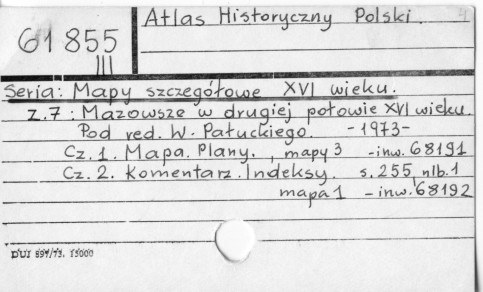 Atlas Historyczny Polski.
61855
III
Seria: Mapy szczegółowe XVI wieku.
z.7: Mazowsze w drugiej połowie XVI wieku.
Pod red. W. Pałuckiego. -1973-
Cz. 1. Mapa. Plany., mapy 3 -inw. 68191
Cz. 2. Komentarz. Indeksy. s. 255, nlb. 1
mapa 1 -inw. 68192
DUI 594/73. 15000